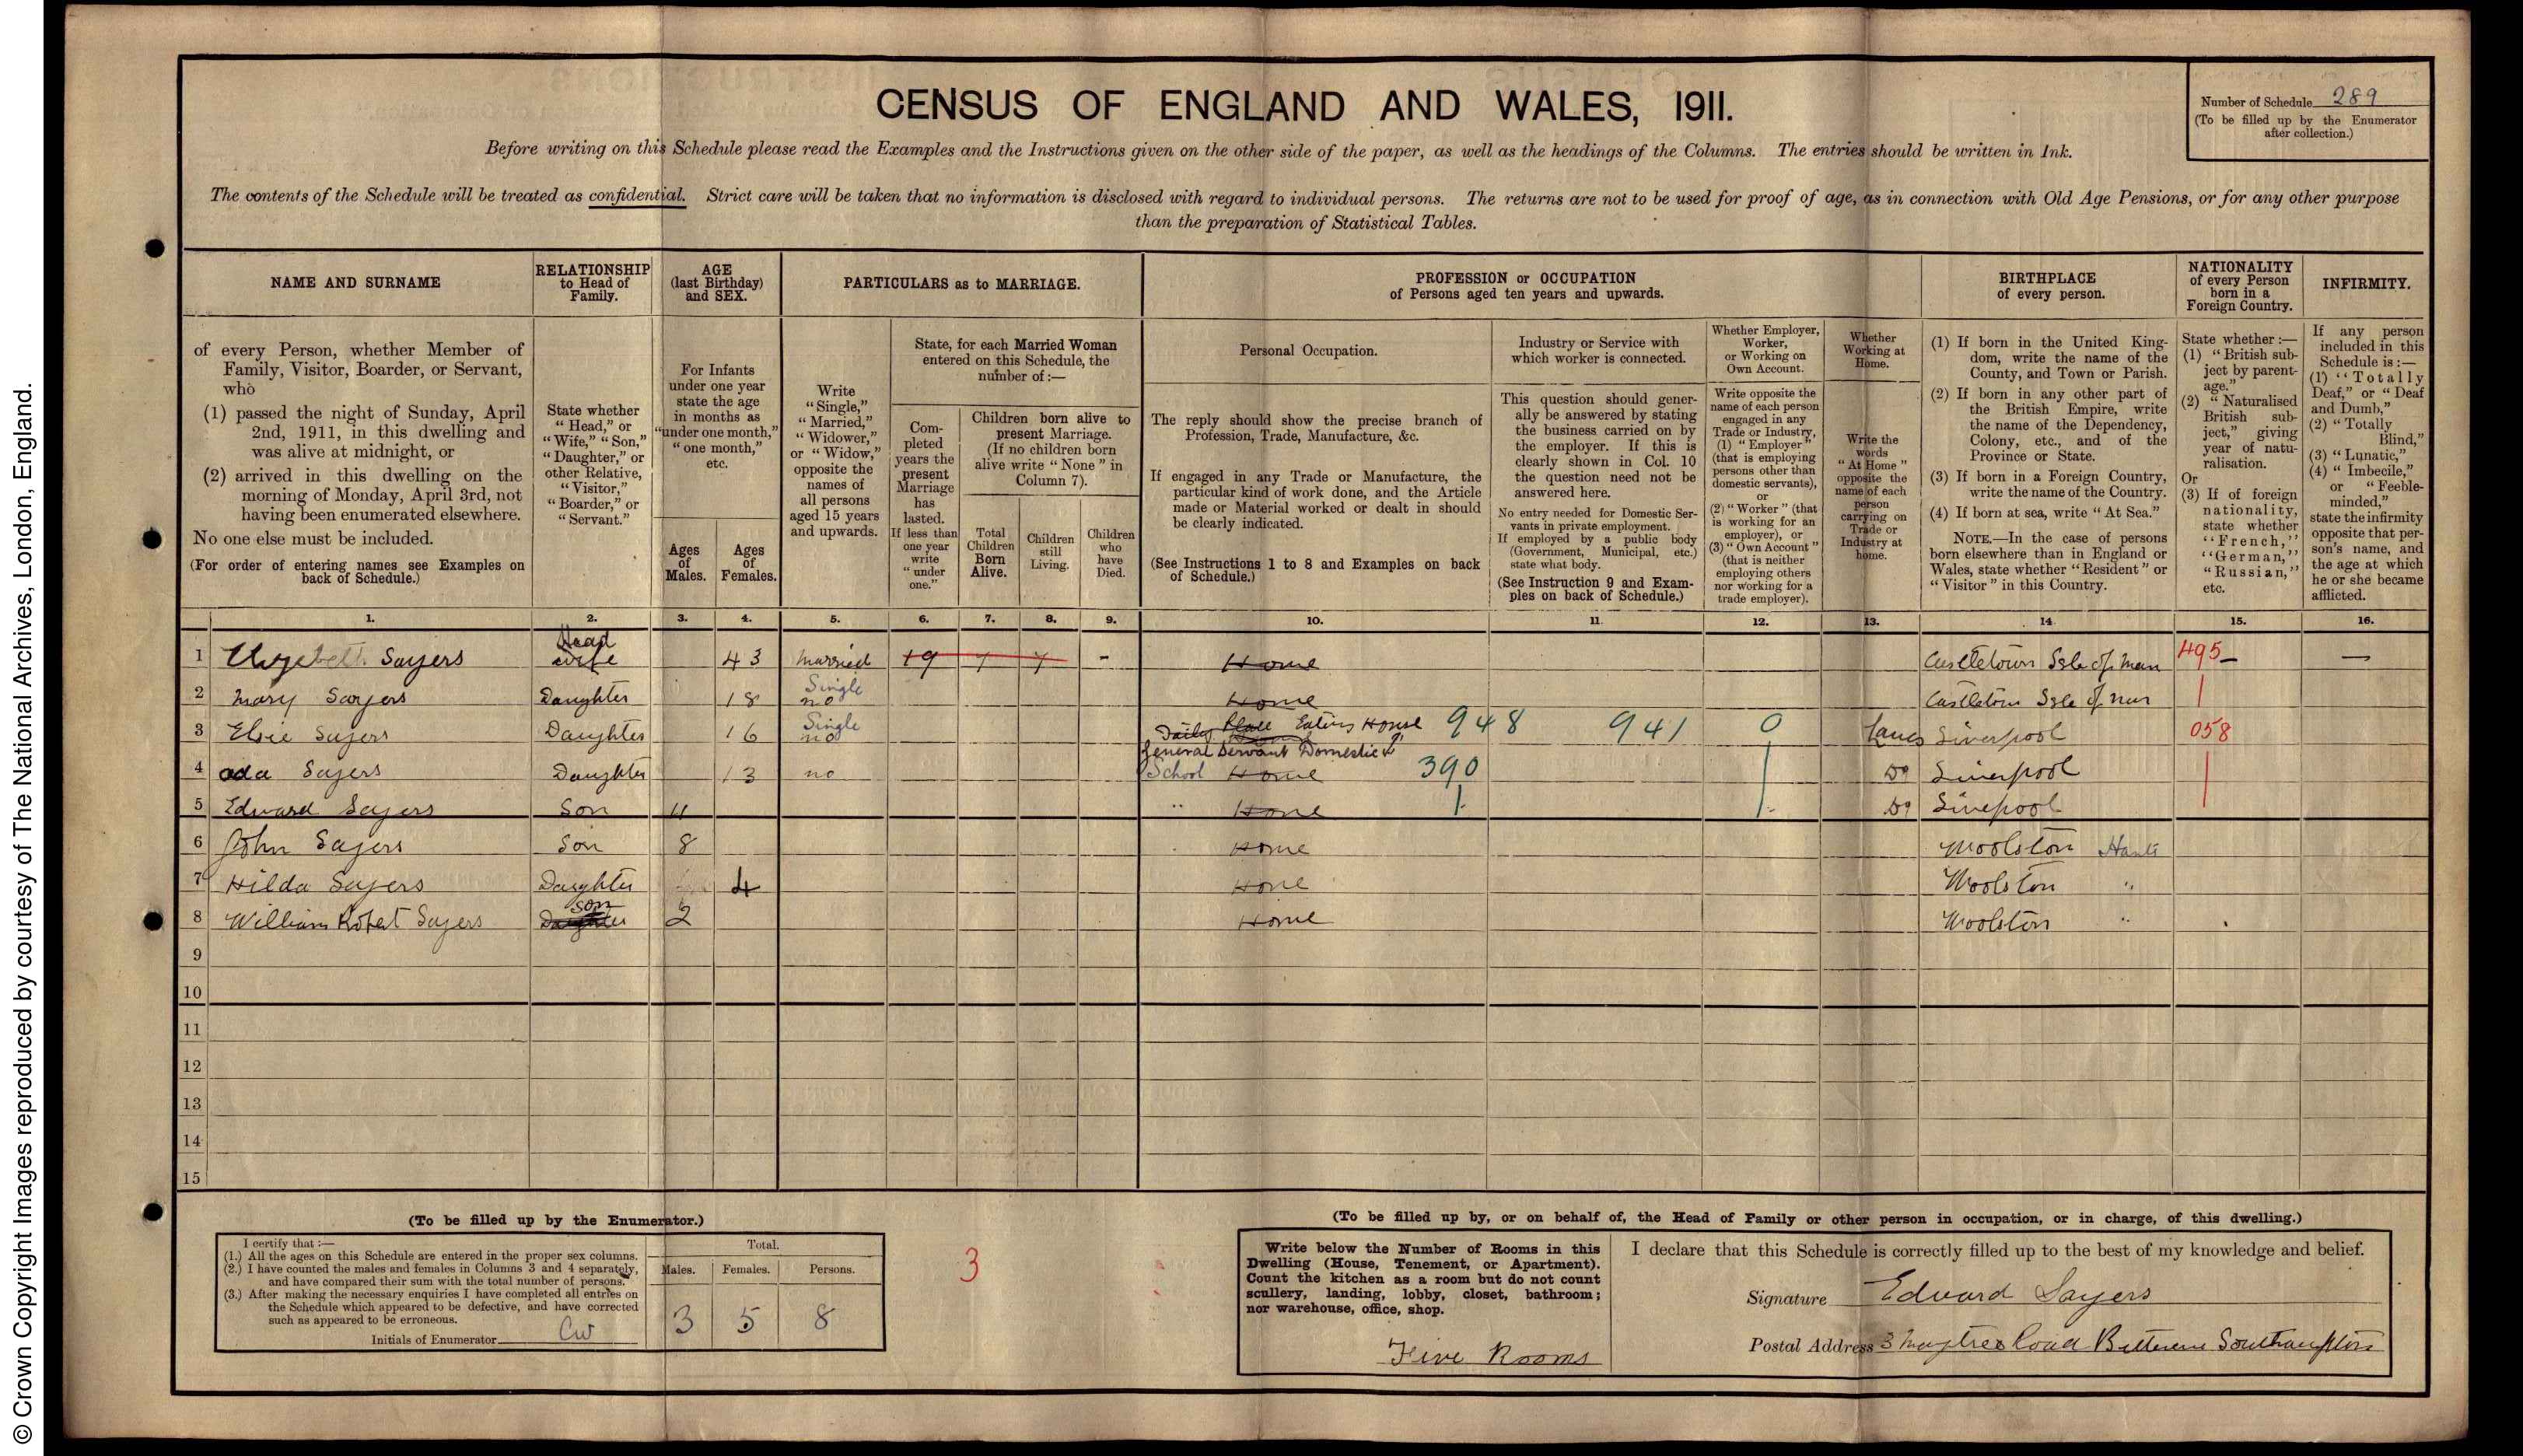 © Crown Copyright Images reproduced by courtesy of The National Archives, London, England.
CENSUS OF ENGLAND AND WALES, 1911.
Number of Schedule 289
(To be filled up by the Enumerator
after collection.)
Before writing on this Schedule please read the Examples and the Instructions given on the other side of the paper, as well as the headings of the Columns. The entries should be written in Ink.
The contents of the Schedule will be treated as confidential. Strict care will be taken that no information is disclosed with regard to individual persons. The returns are not to be used for proof of age, as in connection with Old Age Pensions, or for any other purpose
than the preparation of Statistical Tables.
NAME AND SURNAME
of every Person, whether Member of
Family, Visitor, Boarder, or Servant,
who
(1) passed the night of Sunday, April
2nd, 1911, in this dwelling and
was alive at midnight, or
(2) arrived in this dwelling on the
morning of Monday, April 3rd, not
having been enumerated elsewhere.
No one else must be included.
(For order of entering names see Examples on
back of Schedule.)
RELATIONSHIP
to Head of
Family.
State whether
"Head," or
"Wife," "Son,"
"Daughter," or
other Relative,
"Visitor,"
"Boarder," or
"Servant."
AGE
(last Birthday)
and SEX.
For Infants
under one year
state the age
in months as
"under one month,"
"one month,"
etc.
Ages
of
Males.
Ages
of
Females.
PARTICULARS as to MARRIAGE.
Write
"Single,"
"Married,"
"Widower,"
or "Widow,"
opposite the
names of
all persons
aged 15 years
and upwards.
State, for each Married Woman
entered on this Schedule, the
number of:—
Com-
pleted
years the
present
Marriage
has
lasted.
If less than
one year
write
"under
one."
Children born alive to
present Marriage.
(If no children born
alive write "None" in
Column 7).
Total
Children
Born
Alive.
Children
still
Living.
Children
who
have
Died.
PROFESSION or OCCUPATION
of Persons aged ten years and upwards.
Personal Occupation.
The reply should show the precise branch of
Profession, Trade, Manufacture, &c.
If engaged in any Trade or Manufacture, the
particular kind of work done, and the Article
made or Material worked or dealt in should
be clearly indicated.
(See Instructions 1 to 8 and Examples on back
of Schedule.)
Industry or Service with
which worker is connected.
This question should gener-
ally be answered by stating
the business carried on by
the employer. If this is
clearly shown in Col. 10
the question need not be
answered here.
No entry needed for Domestic Ser-
vants in private employment.
If employed by a public body
(Government, Municipal, etc.)
state what body.
(See Instruction 9 and Exam-
ples on back of Schedule.)
Whether Employer,
Worker,
or Working on
Own Account.
Write opposite the
name of each person
engaged in any
Trade or Industry,
(1) "Employer"
(that is employing
persons other than
domestic servants),
or
(2) "Worker" (that
is working for an
employer), or
(3) "Own Account"
(that is neither
employing others
nor working for a
trade employer).
Whether
Working at
Home.
Write the
words
"At Home"
opposite the
name of each
person
carrying on
Trade or
Industry at
home.
BIRTHPLACE
of every person.
(1) If born in the United King-
dom, write the name of the
County, and Town or Parish.
(2) If born in any other part of
the British Empire, write
the name of the Dependency,
Colony, etc., and of the
Province or State.
(3) If born in a Foreign Country,
write the name of the Country.
(4) If born at sea, write "At Sea."
NOTE.—In the case of persons
born elsewhere than in England or
Wales, state whether "Resident" or
"Visitor" in this Country.
NATIONALITY
of every Person
born in a
Foreign Country.
State whether:—
(1) "British sub-
ject by parent-
age."
(2) "Naturalised
British sub-
ject," giving
year of natu-
ralisation.
Or
(3) If of foreign
nationality,
state whether
"French,"
"German,"
"Russian,"
etc.
INFIRMITY.
If any person
included in this
Schedule is:—
(1) "Totally
Deaf," or "Deaf
and Dumb,"
(2) "Totally
Blind,"
(3) "Lunatic,"
(4) "Imbecile,"
or "Feeble-
minded,"
state the infirmity
opposite that per-
son's name, and
the age at which
he or she became
afflicted.
1. 2. 3. 4. 5. 6. 7. 8. 9. 10. 11. 12. 13. 14 15. 16.
Head
1 Elizabeth Sayers wife 43 married 19 7 7 - Home Castletown Isle of man 495 —
Single
2 mary Sayers Daughter 18 no Home Castletown Isle of man
Single
3 Elsie Sayers Daughter 16 no Daily Eating House 948 941 0 Lancs Liverpool 058
General Servant Domestic
4 ada Sayers Daughter 13 no School Home 390 Do Liverpool
5 Edward Sayers Son 11 " Home Do Liverpool
6 John Sayers Son 8 Home Woolston Hants
7 Hilda Sayers Daughter 4 Home Woolston "
son
8 William Robert Sayers Daughter 2 Home Woolston "
9
10
11
12
13
14
15
(To be filled up by the Enumerator.)
I certify that:—
(1.) All the ages on this Schedule are entered in the proper sex columns.
(2.) I have counted the males and females in Columns 3 and 4 separately,
and have compared their sum with the total number of persons.
(3.) After making the necessary enquiries I have completed all entries on
the Schedule which appeared to be defective, and have corrected
such as appeared to be erroneous.
Initials of Enumerator CW
Total.
Males. Females. Persons.
3 5 8
3
(To be filled up by, or on behalf of, the Head of Family or other person in occupation, or in charge, of this dwelling.)
Write below the Number of Rooms in this
Dwelling (House, Tenement, or Apartment).
Count the kitchen as a room but do not count
scullery, landing, lobby, closet, bathroom;
nor warehouse, office, shop.
Five Rooms
I declare that this Schedule is correctly filled up to the best of my knowledge and belief.
Signature Edward Sayers
Postal Address 3 Maytree Road Bitterne Southampton